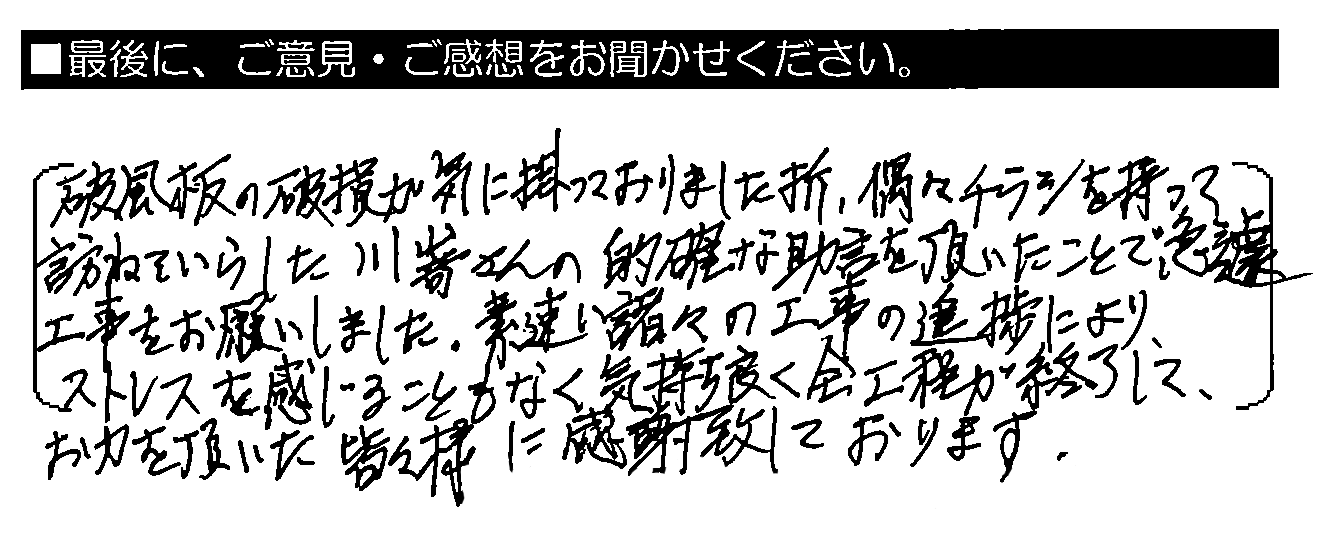 ■最後に、ご意見・ご感想をお聞かせください。
破風板の破損が気に掛っておりました折、偶々チラシを持って
訪ねていらした川嵜さんの的確な助言を頂いたことで急遽
工事をお願いしました。素速い諸々の工事の進捗により、
ストレスを感じることもなく気持ち良く全工程が終了して、
お力を頂いた皆々様に感謝致しております。